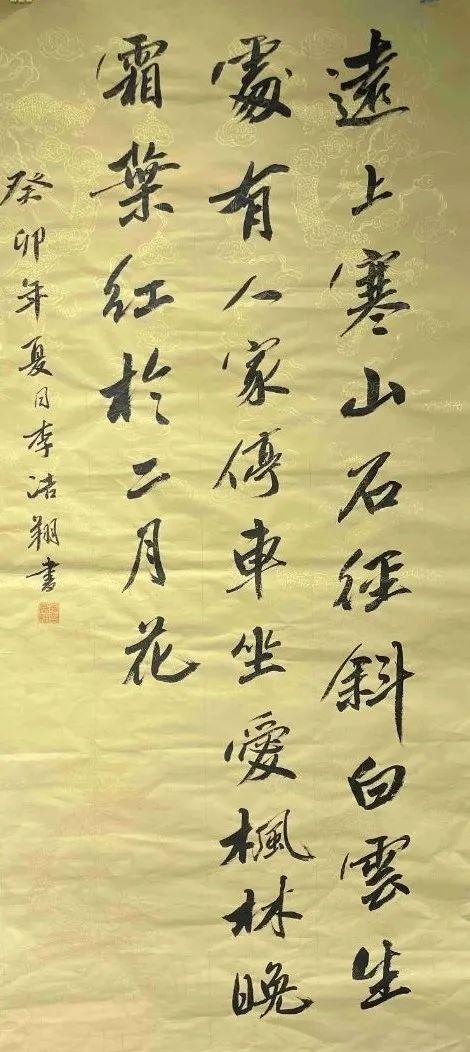 遠上寒山石徑斜白雲生
處有人家停車坐愛楓林晚
霜葉紅於二月花
癸卯年夏日李浩翔書